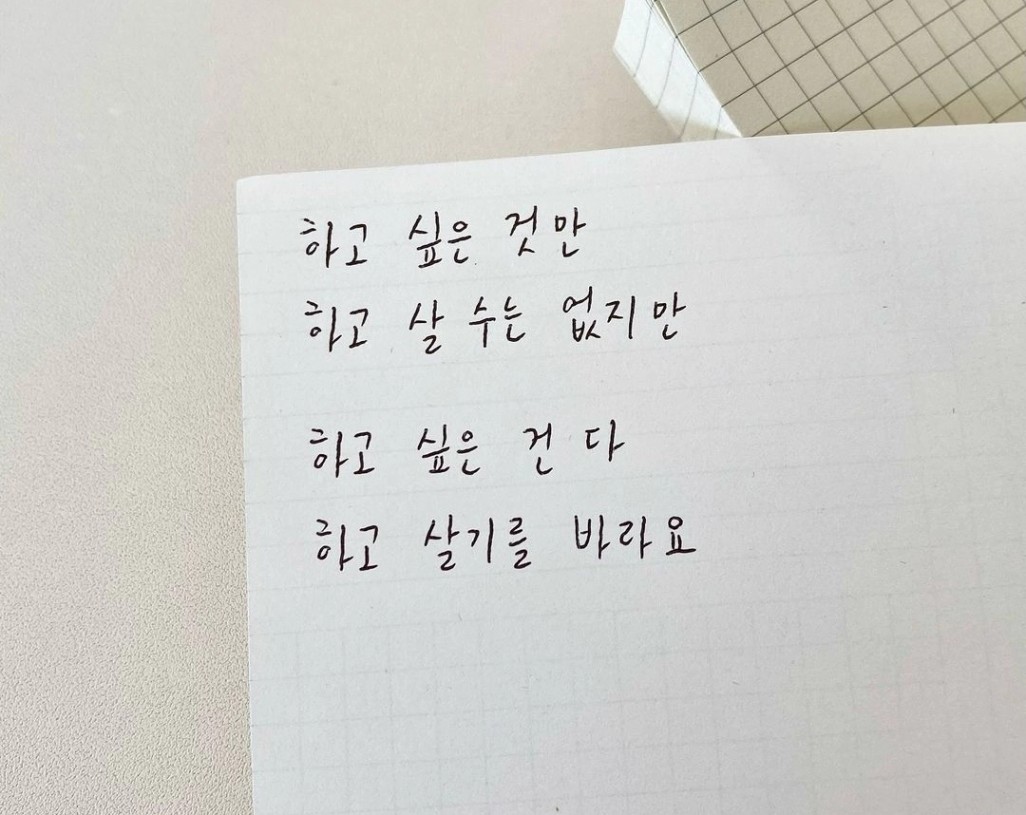 하고 싶은 것만
하고 살 수는 없지만
하고 싶은 건 다
하고 살기를 바라요